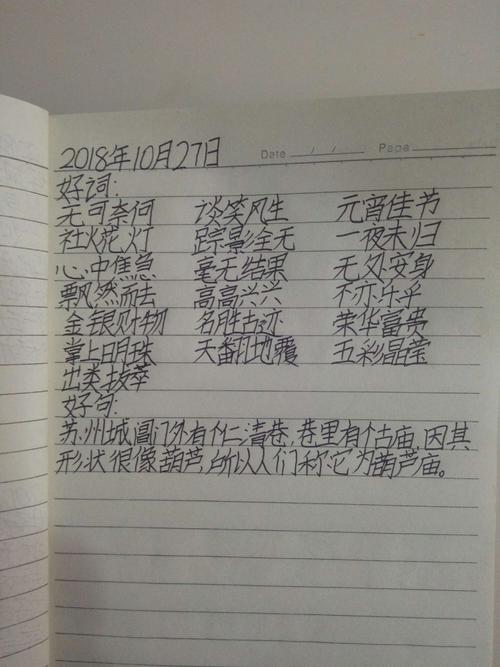 2018年10月27日 Date / / Page
好词:
无可奈何 谈笑风生 元宵佳节
社火花灯 踪影全无 一夜未归
心中焦急 毫无结果 无处安身
飘然而去 高高兴兴 不亦乐乎
金银财物 名胜古迹 荣华富贵
掌上明珠 天翻地覆 五彩晶莹
出类拔萃
好句:
苏州城阊门外有个仁清巷,巷里有个古庙,因其
形状很像葫芦,所以人们称它为葫芦庙。